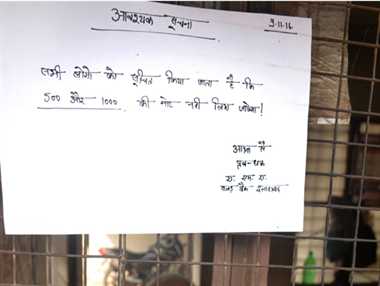 आवश्यक सूचना 9-11-16
सभी लोगो को सूचित किया जाता है कि
500 और 1000 की नोट नही लिया जायेगा!
आज्ञा से